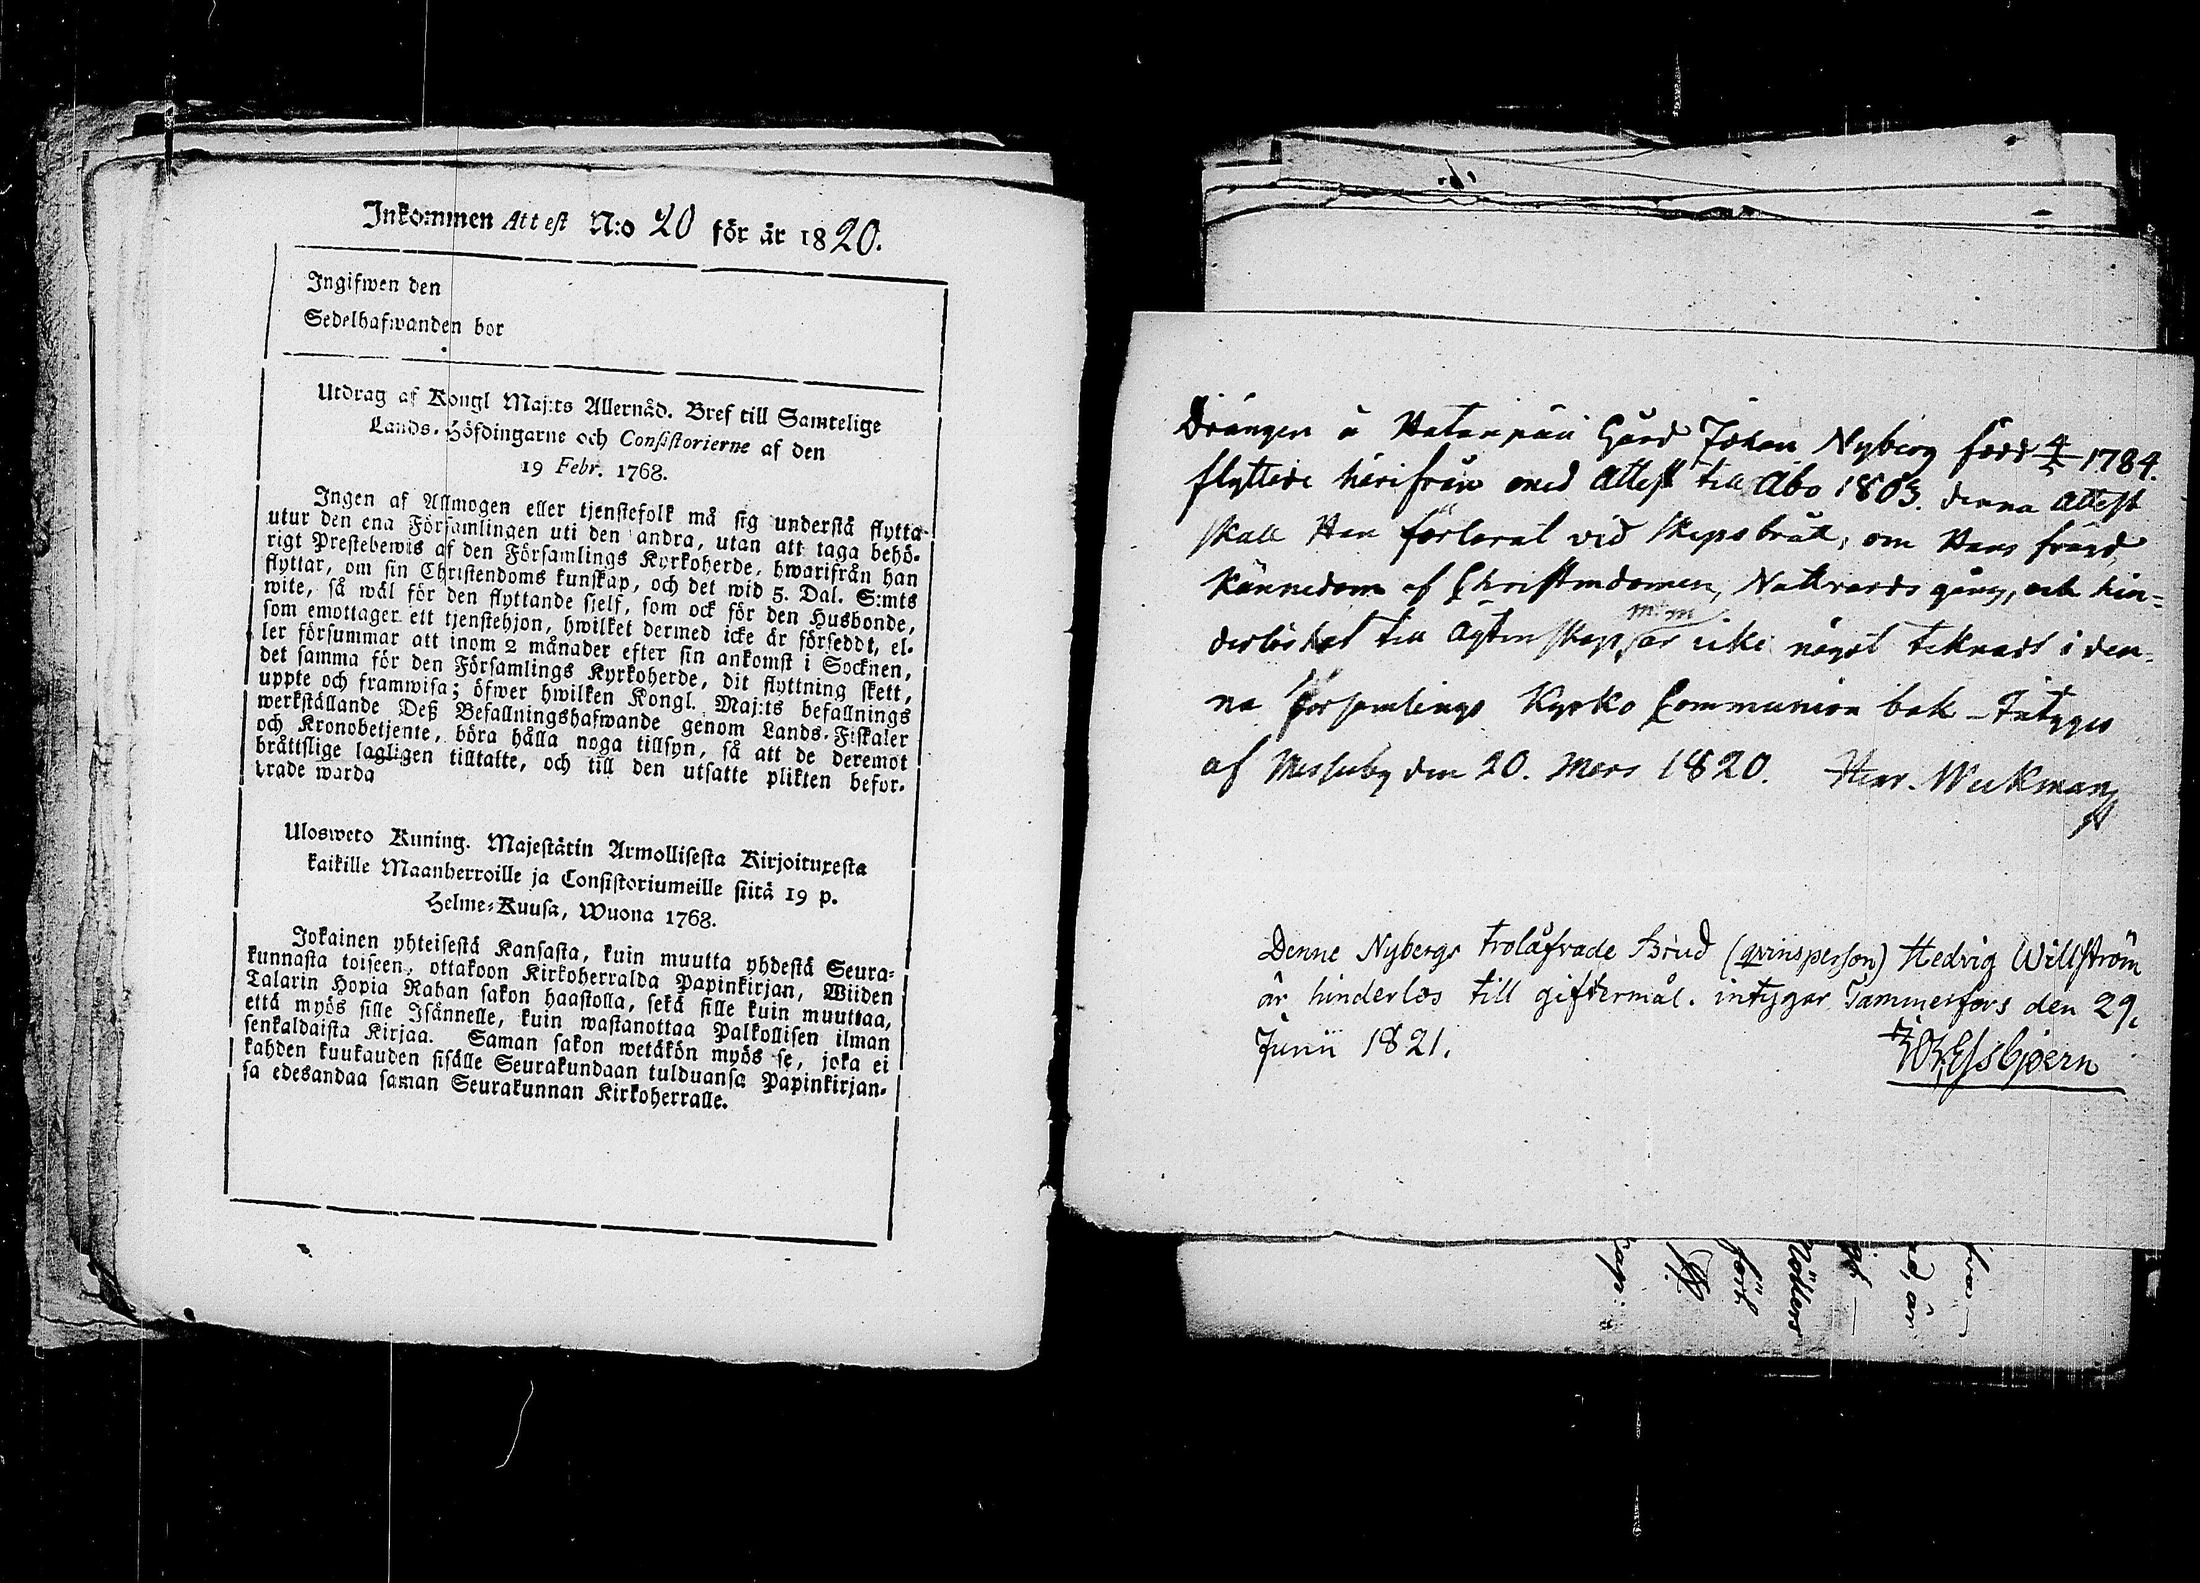 Inkommen Attest N:o 20 för år 1820.
Ingifwen den
Sedelhafwanden bor
Utdrag af Kongl Maj:ts Allernåd. Bref till Samtelige
Lands-Höfdingarne och Consistorierne af den
19 Febr. 1768.
Ingen af Allmogen eller tjenstefolk må sig understå flytta
utur den ena Församlingen uti den andra, utan att taga behö-
rigt Prestebewis af den Församlings Kyrkoherde, hwarifrån han
flyttar, om sin Christendoms kunskap, och det wid 5. Dal. S:mts
wite, så wäl för den flyttande sjelf, som ock för den Husbonde,
som emottager ett tjenstehjon, hwilket dermed icke är försedt, el-
ler försummar att inom 2 månader efter sin ankomst i Socknen,
det samma för den Församlings Kyrkoherde, dit flyttning skett,
uppte och framwisa; öfwer hwilken Kongl. Maj:ts befallnings
werkställande Deß Befallningshafwande genom Lands-Fiskaler
och Kronobetjente, böra hålla noga tillsyn, så att de deremot
bråttslige lagligen tilltalte, och till den utsatte plikten befor-
drade warda
Ulosweto Kuning. Majestätin Armollisesta Kirjoituxesta
kaikille Maanherroille ja Consistoriumeille siitä 19 p.
Helme-Kuusa, Wuona 1768.
Jokainen yhteisestä Kansasta, kuin muutta yhdestä Seura-
kunnasta toiseen, ottakoon Kirkoherralda Papinkirjan, Wiiden
Talarin Hopia Rahan sakon haastolla, sekä sille kuin muuttaa,
että myös sille Isännelle, kuin wastanottaa Palkollisen ilman
senkaldaista Kirjaa. Saman sakon wetäkön myös se, joka ei
kahden kuukauden sisälle Seurakundaan tulduansa Papinkirjan-
sa edesandaa saman Seurakunnan Kirkoherralle.
Drängen å Hatanpää Gård Johan Nyberg född 4/5 1784.
flyttade härifrån med Attest till Åbo 1803. denna Attest
skall Han förlorat vid skepsbrått, om Hans fräjd
Kännedom af Christendomen, Nattvards gång, och hin=
derlöshet till Ägtenskap, m:m är icke något teknadt i den-
na Församlings Kyrko Communion bok – Intygas
af Messuby den 20. Mars 1820. Henr. Wickman
Denne Nybergs trolåfvade Brud (qvinsperson) Hedvig Willström
är hinderlös till giftermål. intygar Tammerfors den 29.
Junii 1821.
Elfsbjoern
hvar
ad, är
Nöllers
förb